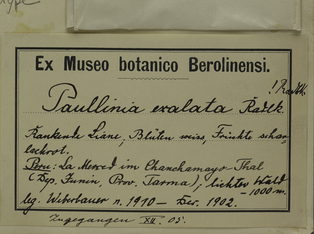 type
Ex Museo botanico Berolinensi.
! Radlk.
Paullinia exalata Radlk.
Rankende Liane, Blüten weiss, Früchte schar-
lachrot.
Peru: La Merced im Chanchamayo-Thal
(Dep. Junin, Prov. Tarma); lichter Wald
-1000 m.
leg. Weberbauer n. 1910 – Dez. 1902.
Zugegangen XII. 05.